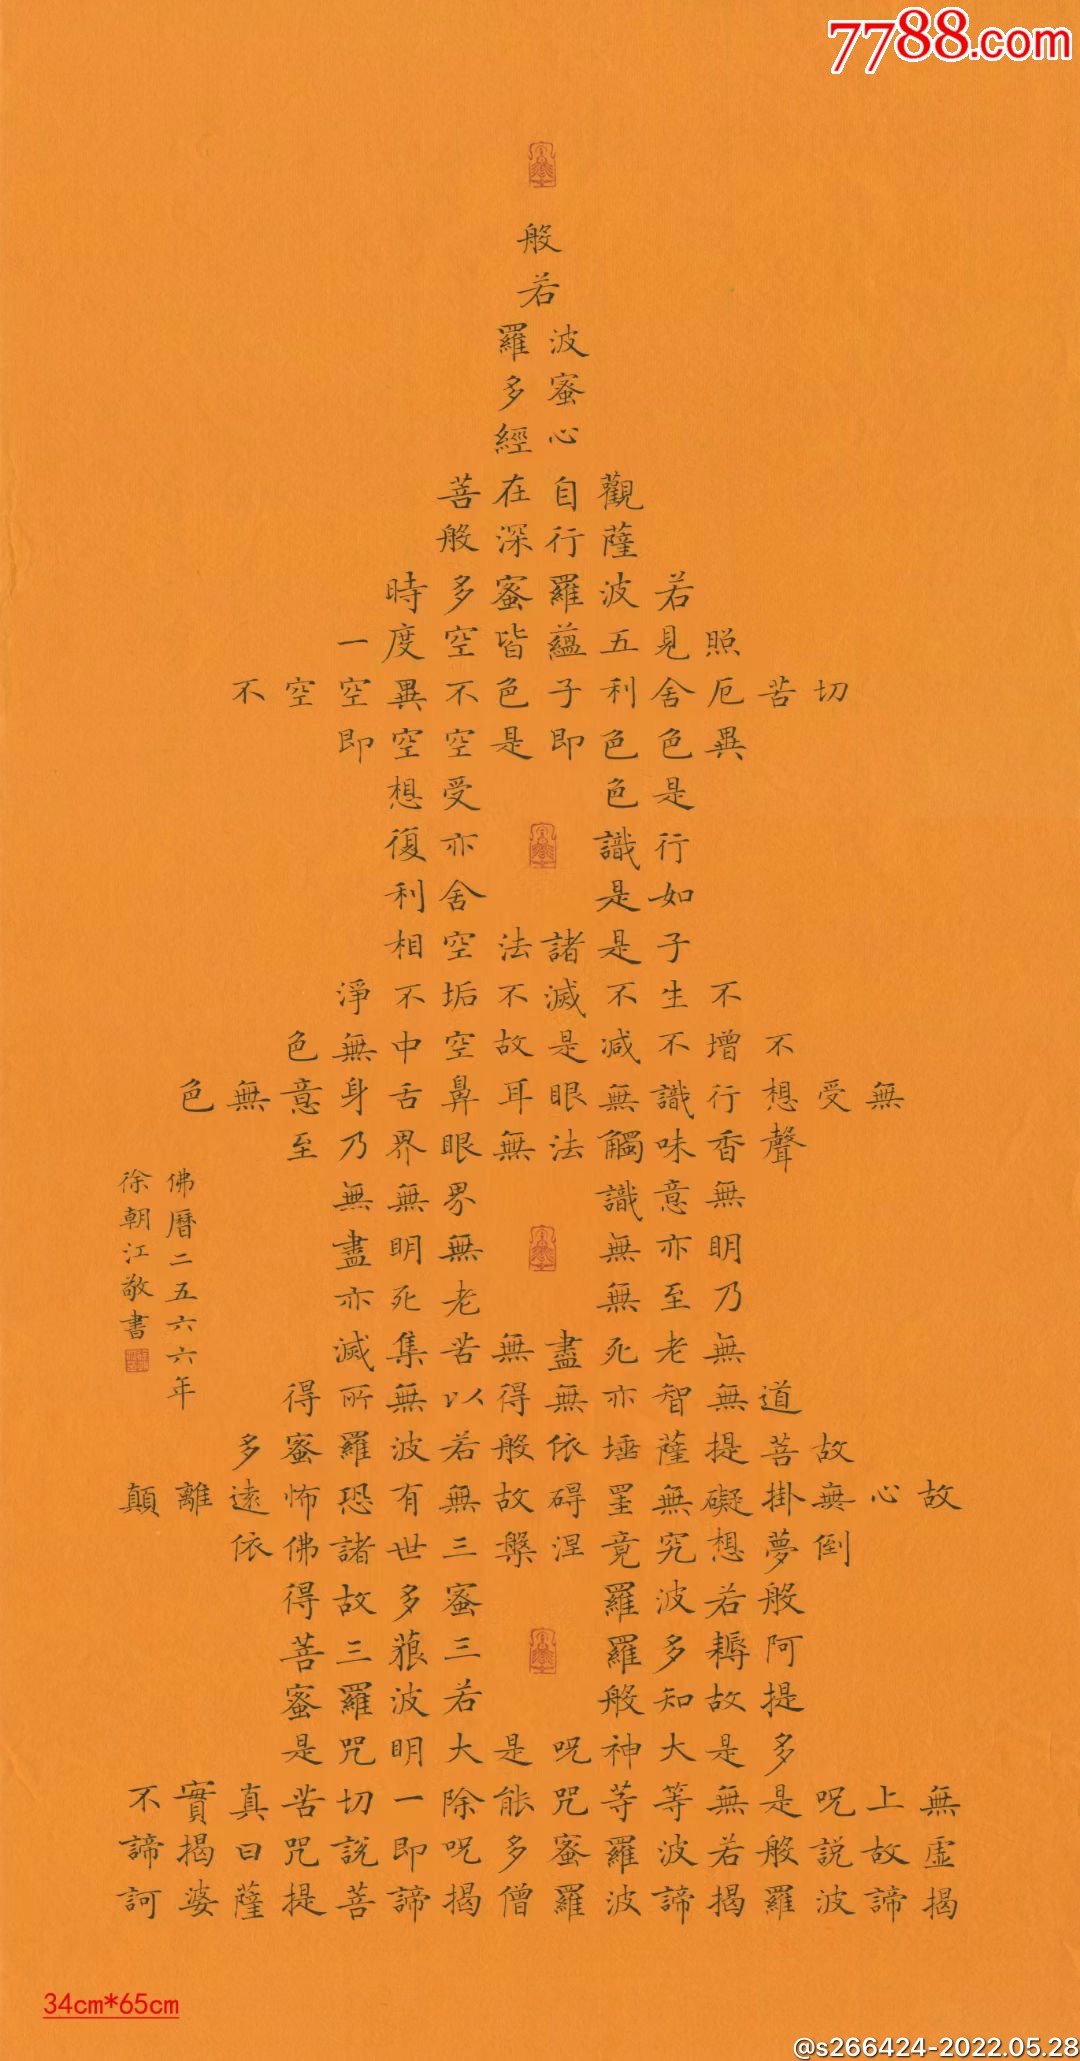 7788.com
般
若
波羅
蜜多
心經
觀自在菩
薩行深般
若波羅蜜多時
照見五蘊皆空度一
切苦厄舍利子色不異空空不
異色色即是空空即
是色受想
行識亦復
如是舍利
子是諸法空相
不生不滅不垢不淨
不增不減是故空中無色
無受想行識無眼耳鼻舌身意無色
聲香味觸法無眼界乃至
無意識界無無
明亦無無明盡
乃至無老死亦
無老死盡無苦集滅
道無智亦無得以無所得
故菩提薩埵依般若波羅蜜多
故心無掛礙無罣碍故無有恐怖遠離顛
倒夢想究竟涅槃三世諸佛依
般若波羅蜜多故得
阿耨多羅三藐三菩
提故知般若波羅蜜
多是大神呪是大明咒是
無上呪是無等等咒能除一切苦真實不
虛故說般若波羅蜜多呪即說咒曰揭諦
揭諦波羅揭諦波羅僧揭諦菩提薩婆訶
佛曆二五六六年
徐朝江敬書
34cm*65cm
@s266424-2022.05.28